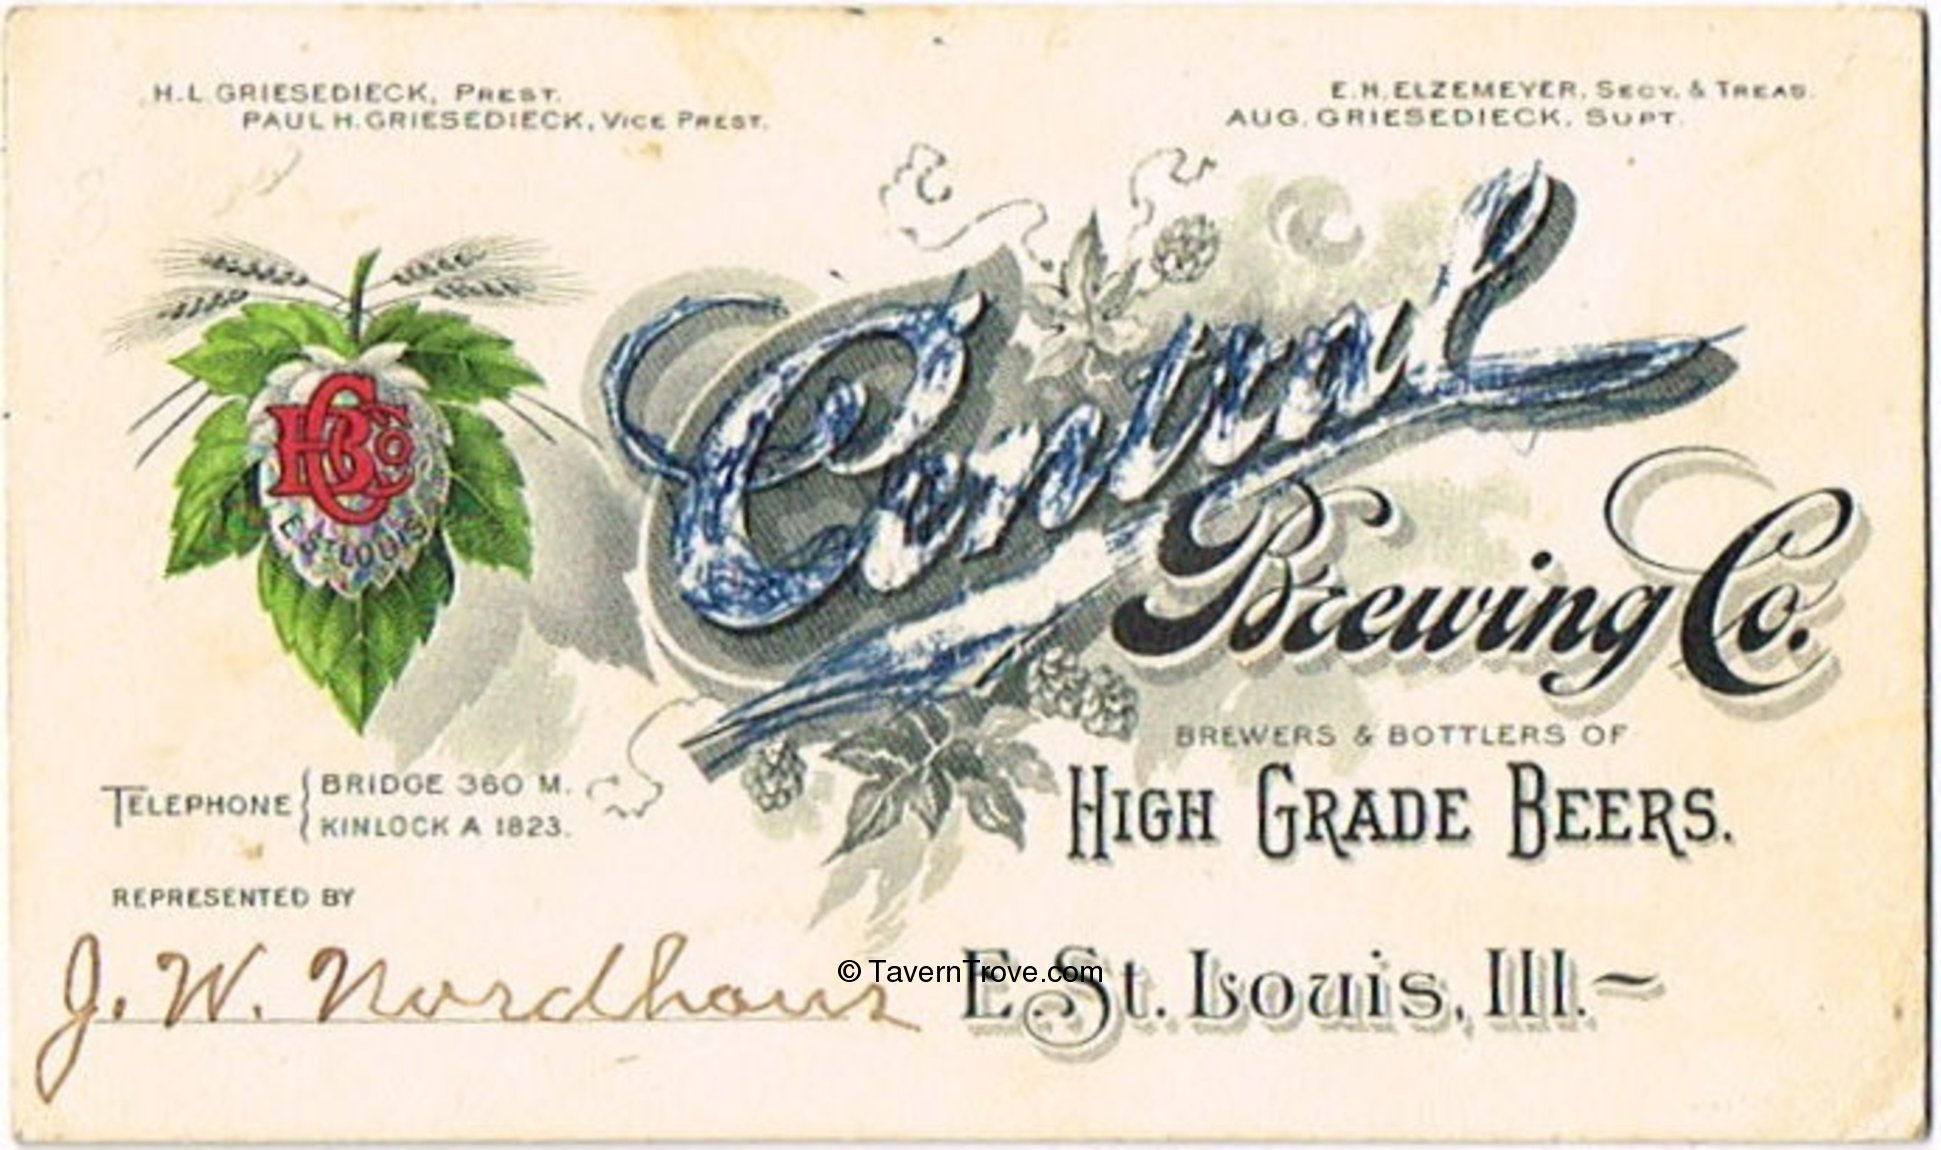 H. L. GRIESEDIECK, PREST.
PAUL H. GRIESEDIECK, VICE PREST.
E. H. ELZEMEYER, SECY. & TREAS.
AUG. GRIESEDIECK, SUPT.
Central
Brewing Co.
CBCo
E. ST. LOUIS
BREWERS & BOTTLERS OF
HIGH GRADE BEERS.
TELEPHONE
BRIDGE 360 M.
KINLOCK A 1823.
REPRESENTED BY
J. W. Nordhaus
© TavernTrove.com
E. St. Louis, Ill.~